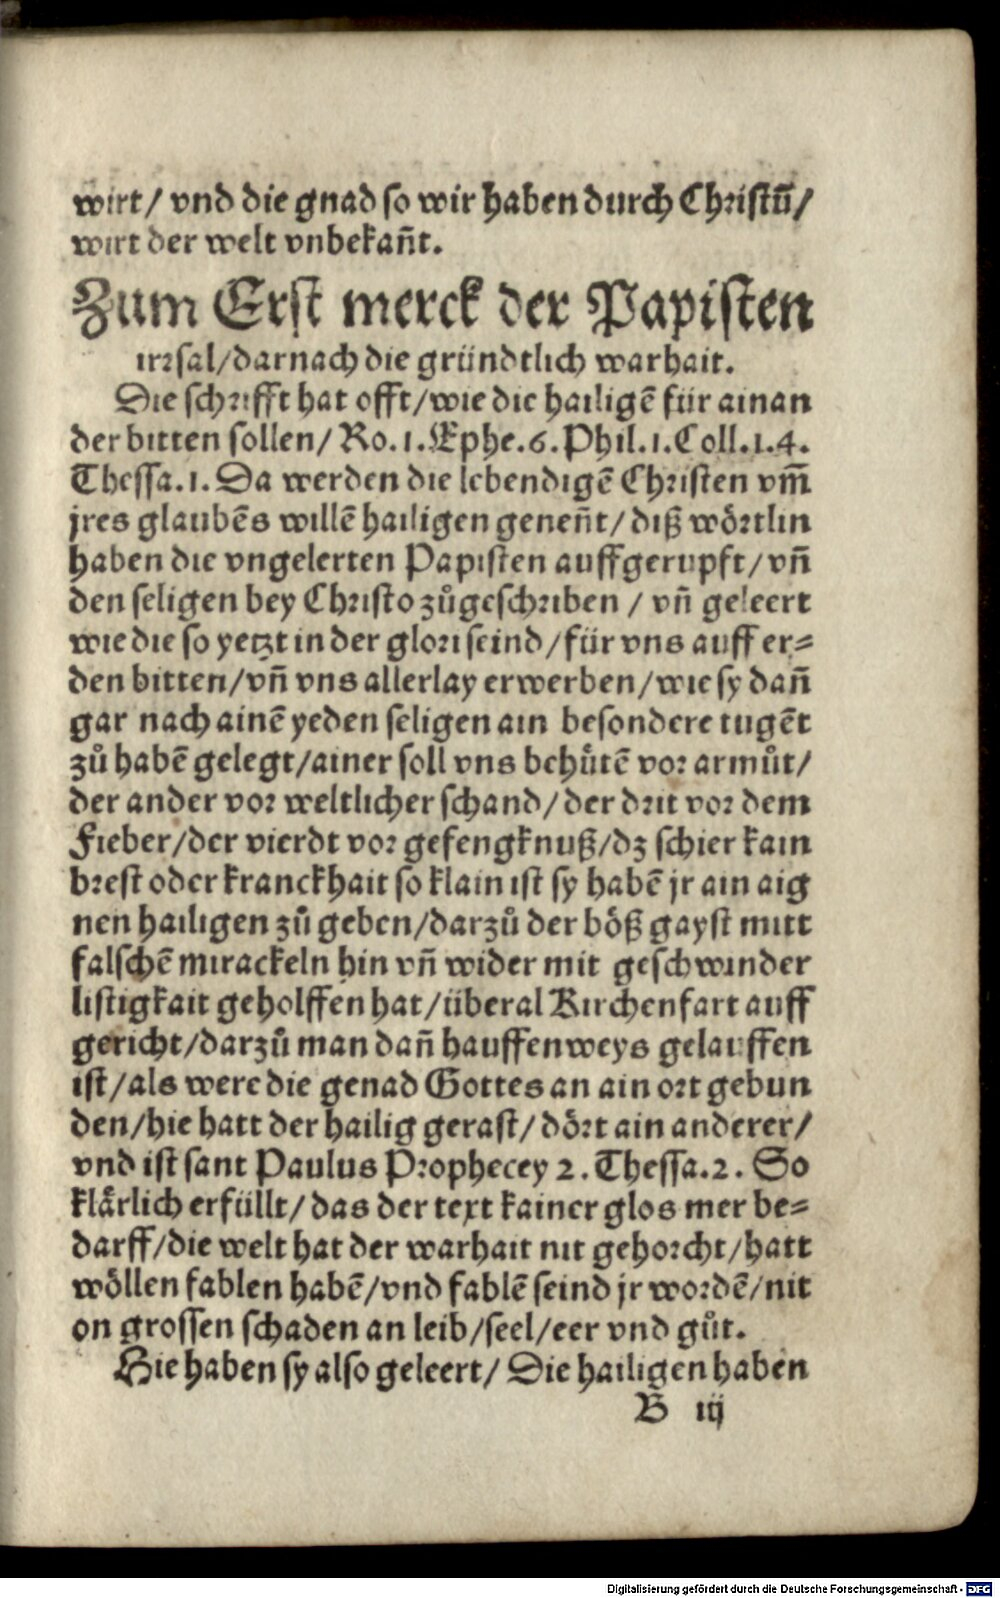 wirt/ vnd die gnad so wir haben durch Christũ/
wirt der welt vnbekañt.
Zum Erst merck der Papisten
irrsal/darnach die gründtlich warhait.
Die schrifft hat offt/wie die hailigẽ für ainan
der bitten sollen/ Ro.1.Ephe.6.Phil.1.Coll.1.4.
Thessa.1. Da werden die lebendigẽ Christen vm̃
jres glaubẽs willẽ hailigen geneñt/ diß wörtlin
haben die vngelerten Papisten auffgerupft/ vñ
den seligen bey Christo zůgeschriben / vñ geleert
wie die so yetzt in der glori seind/für vns auff er=
den bitten/vñ vns allerlay erwerben/wie sy dañ
gar nach ainẽ yeden seligen ain besondere tugẽt
zů habẽ gelegt/ainer soll vns behütẽ vor armůt/
der ander vor weltlicher schand/der drit vor dem
Fieber/der vierdt vor gefengknuß/dz schier kain
brest oder kranckhait so klain ist sy habẽ jr ain aig
nen hailigen zů geben/darzů der böß gayst mitt
falschẽ mirackeln hin vñ wider mit geschwinder
listigkait geholffen hat/überal Kirchenfart auff
gericht/darzů man dañ hauffenweys gelauffen
ist/als were die genad Gottes an ain ort gebun
den/hie hatt der hailig gerast/ dört ain anderer/
vnd ist sant Paulus Prophecey 2.Thessa.2. So
klärlich erfüllt/ das der text kainer glos mer be=
darff/die welt hat der warhait nit gehorcht/hatt
wöllen fablen habẽ/vnd fablẽ seind jr wordẽ/nit
on grossen schaden an leib/seel/eer vnd gůt.
Hie haben sy also geleert/ Die hailigen haben
B iij
Digitalisierung gefördert durch die Deutsche Forschungsgemeinschaft - DFG